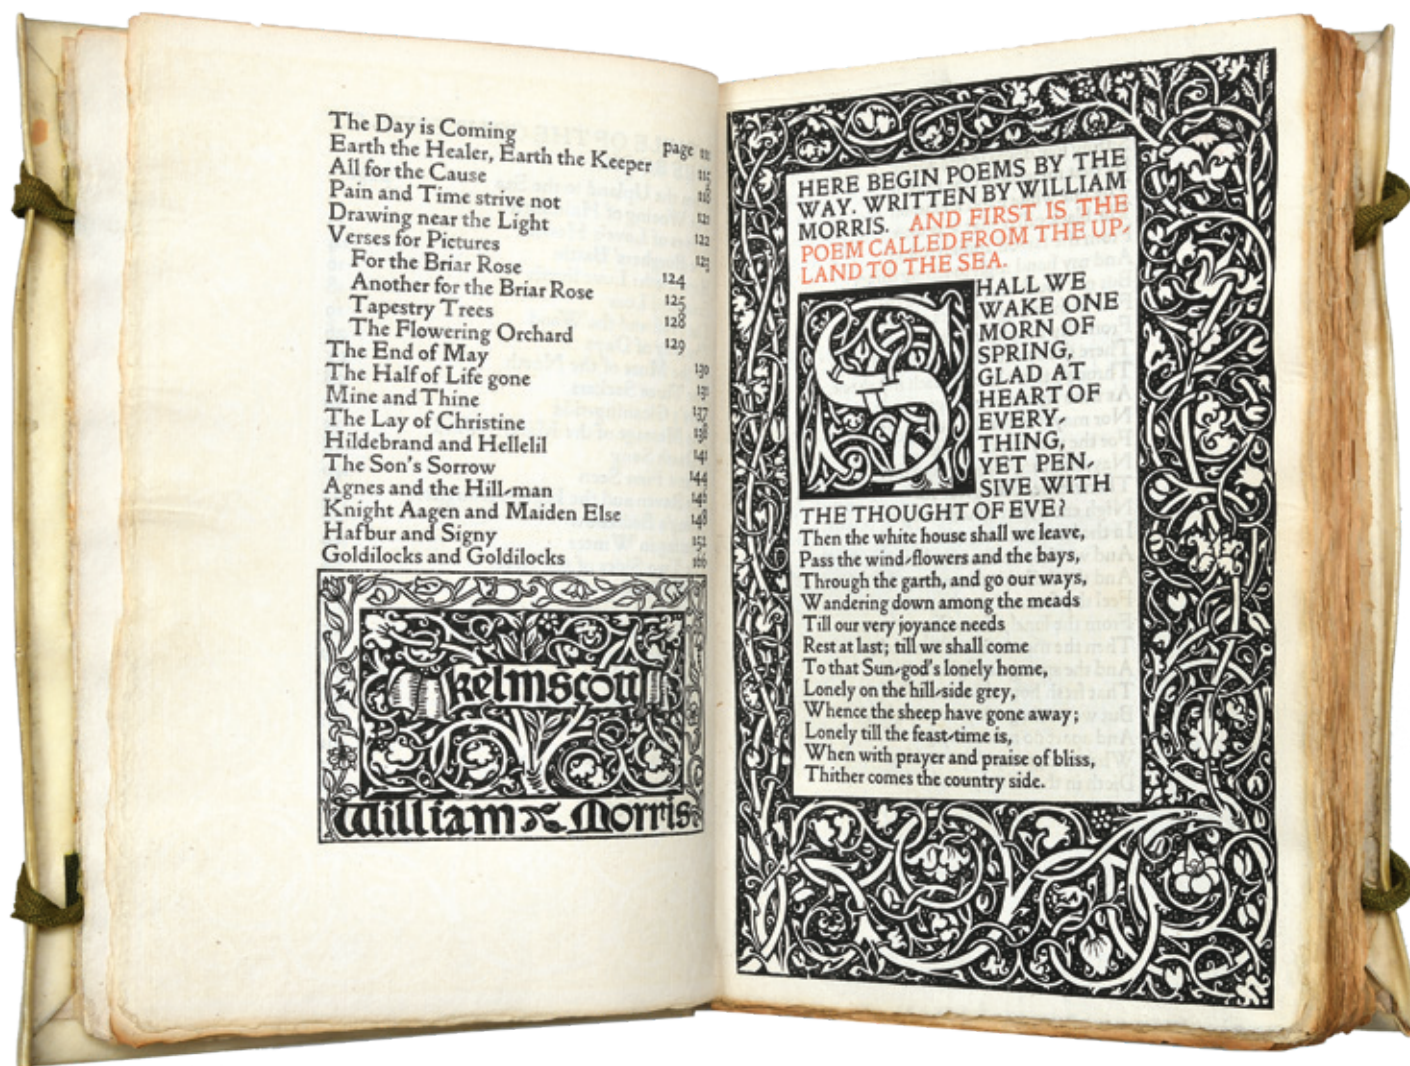 The Day is Coming page
Earth the Healer, Earth the Keeper 115
All for the Cause
Pain and Time strive not 121
Drawing near the Light 122
Verses for Pictures 123
For the Briar Rose 124
Another for the Briar Rose 125
Tapestry Trees 128
The Flowering Orchard 129
The End of May 130
The Half of Life gone 131
Mine and Thine 137
The Lay of Christine 138
Hildebrand and Hellelil 141
The Son's Sorrow 144
Agnes and the Hill-man 146
Knight Aagen and Maiden Else 148
Hafbur and Signy 151
Goldilocks and Goldilocks
kelmscott
William Morris
HERE BEGIN POEMS BY THE
WAY. WRITTEN BY WILLIAM
MORRIS. AND FIRST IS THE
POEM CALLED FROM THE UP-
LAND TO THE SEA.
SHALL WE
WAKE ONE
MORN OF
SPRING,
GLAD AT
HEART OF
EVERY-
THING,
YET PEN-
SIVE WITH
THE THOUGHT OF EVE?
Then the white house shall we leave,
Pass the wind-flowers and the bays,
Through the garth, and go our ways,
Wandering down among the meads
Till our very joyance needs
Rest at last; till we shall come
To that Sun-god's lonely home,
Lonely on the hill-side grey,
Whence the sheep have gone away;
Lonely till the feast-time is,
When with prayer and praise of bliss,
Thither comes the country side.